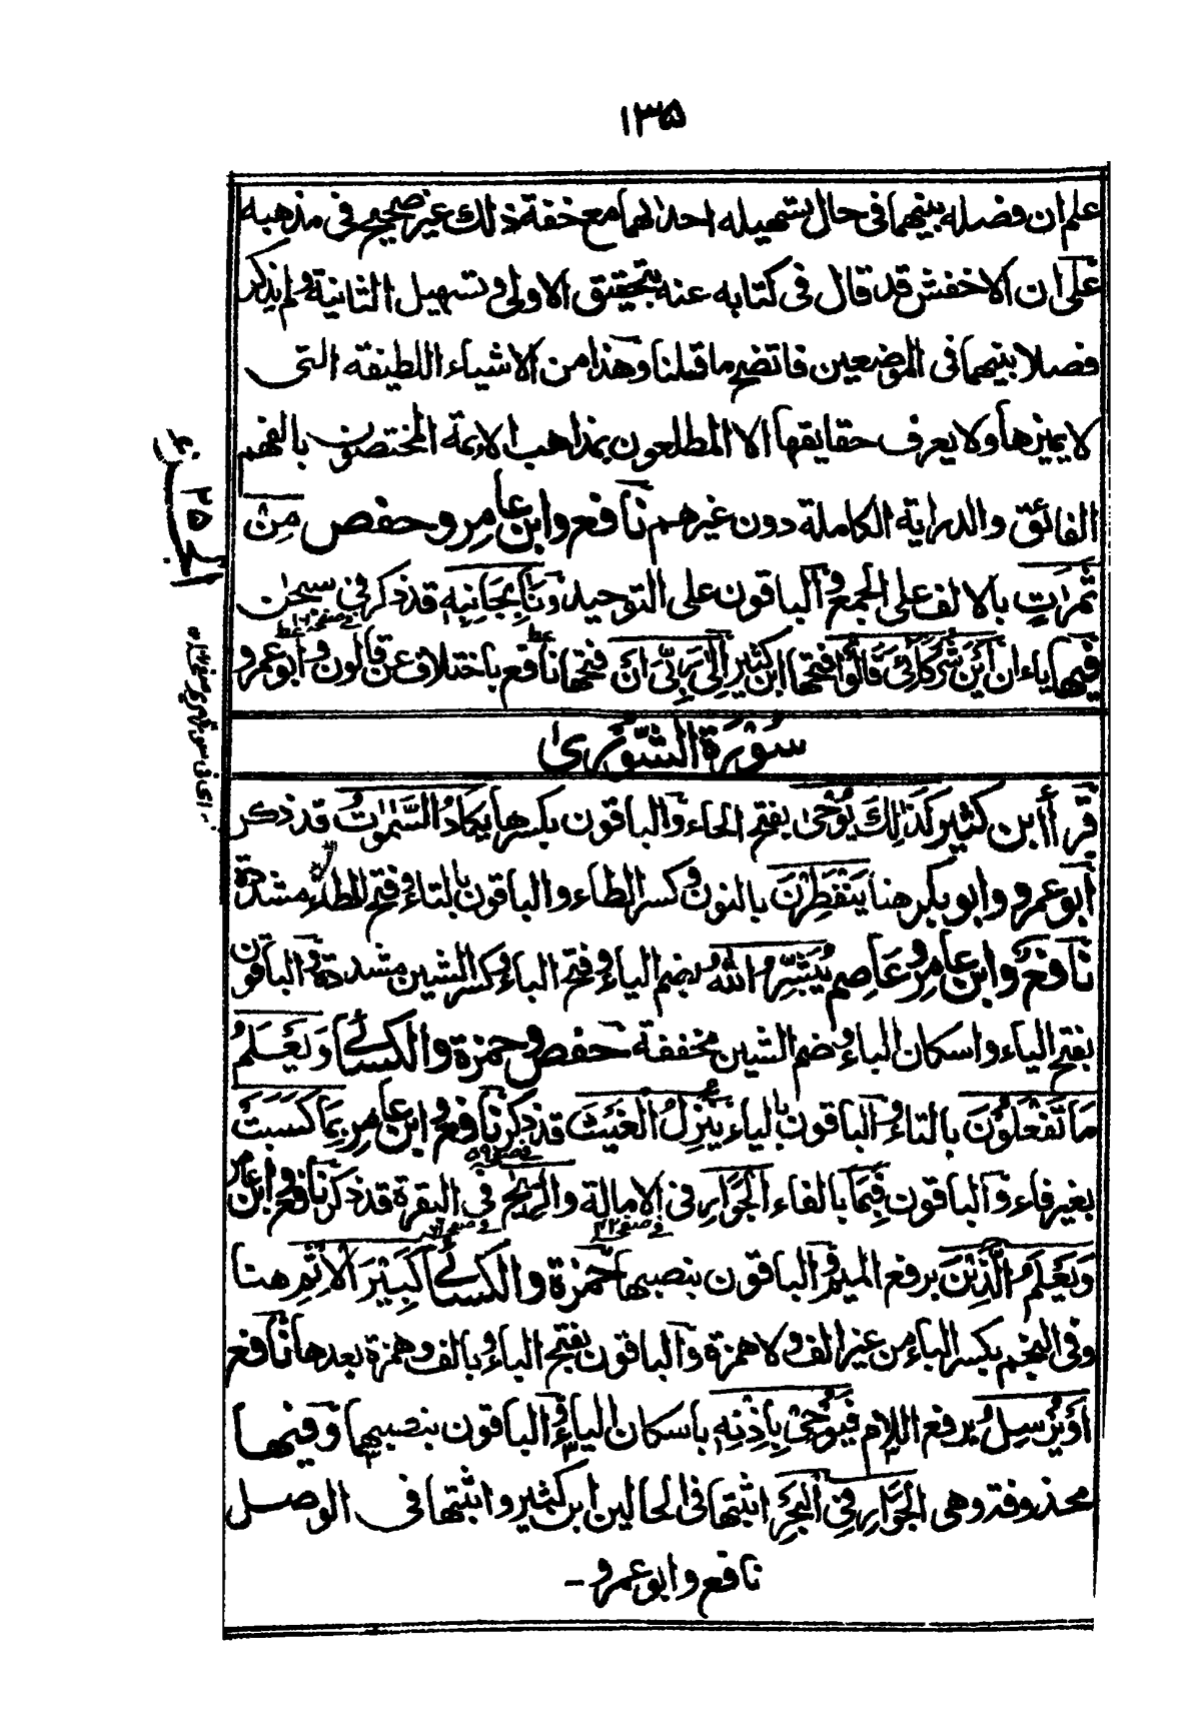 ١٣٥
علم ان فصله بينهما فى حال تسهيله احدٰهما مع خفة ذلك غير صحيح فى مذهبه
على ان الاخفش قد قال فى كتابه عنه بتحقيق الاولى و تسهيل الثانية ولم يذكر
فصلا بينهما فى الموضعين فاتضح ما قلنا وهذا من الاشياء اللطيفة التى
لا يميزها ولا يعرف حقايقها الا المطلعون بمذاهب الائمة المختصون بالفهم
الفائق والدراية الكاملة دون غيرهم نافع وابن عامر وحفص مِنْ
ثَمَرٰتٍ بالالف على الجمع والباقون على التوحيد وَنَاٰ بِجَانِبِهٖ قد ذكر فى سبحٰن
فيها ياء ان اَيْنَ شُرَكَآءِىَ قَالُوْا فتحها ابن كثير اِلٰى رَبِّىٓ اِنَّ فتحها نافع باختلاف عن قالون وابو عمرو
سُوْرَةُ الشُّوْرىٰ
قرأ ابن كثير كَذٰلِكَ يُوْحٰى بفتح الحاء والباقون بكسرها يَكَادُ السَّمٰوٰتُ قد ذكر
ابو عمرو وابو بكر هنا يَنْفَطِرْنَ بالنون وكسر الطاء والباقون بالتاء وفتح الطاء مشددة
نافع وابن عامر وعاصم يُبَشِّرُ اللّٰهُ بضم الياء وفتح الباء وكسر الشين مشددة والباقون
بفتح الياء واسكان الباء وضم الشين مخففة حفص وحمزة والكسائى وَيَعْلَمُ
مَا تَفْعَلُوْنَ بالتاء والباقون بالياء يُنَزِّلُ الْغَيْثَ قد ذكر نافع وابن عامر بِمَا كَسَبَتْ
بغير فاء والباقون فَبِمَا بالفاء الْجَوَارِ فى الامالة والرِّيٰح فى البقرة قد ذكر نافع وابن عامر
وَيَعْلَمُ الَّذِيْنَ برفع الميم والباقون بنصبها حمزة والكسائى كَبِيْرَ الْاِثْمِ هنا
وفى النجم بكسر الباء من غير الف ولا همزة والباقون بفتح الباء وبالف وهمزة بعدها نافع
اَوْ يُرْسِلُ برفع اللام فَيُوْحِىْ بِاِذْنِهٖ باسكان الياء والباقون بنصبهما وفيها
محذوفة وهى الْجَوَارِ فِى الْبَحْرِ اثبتها فى الحالين ابن كثير واثبتها فى الوصل
نافع وابو عمرو -
الجزء ٢٥